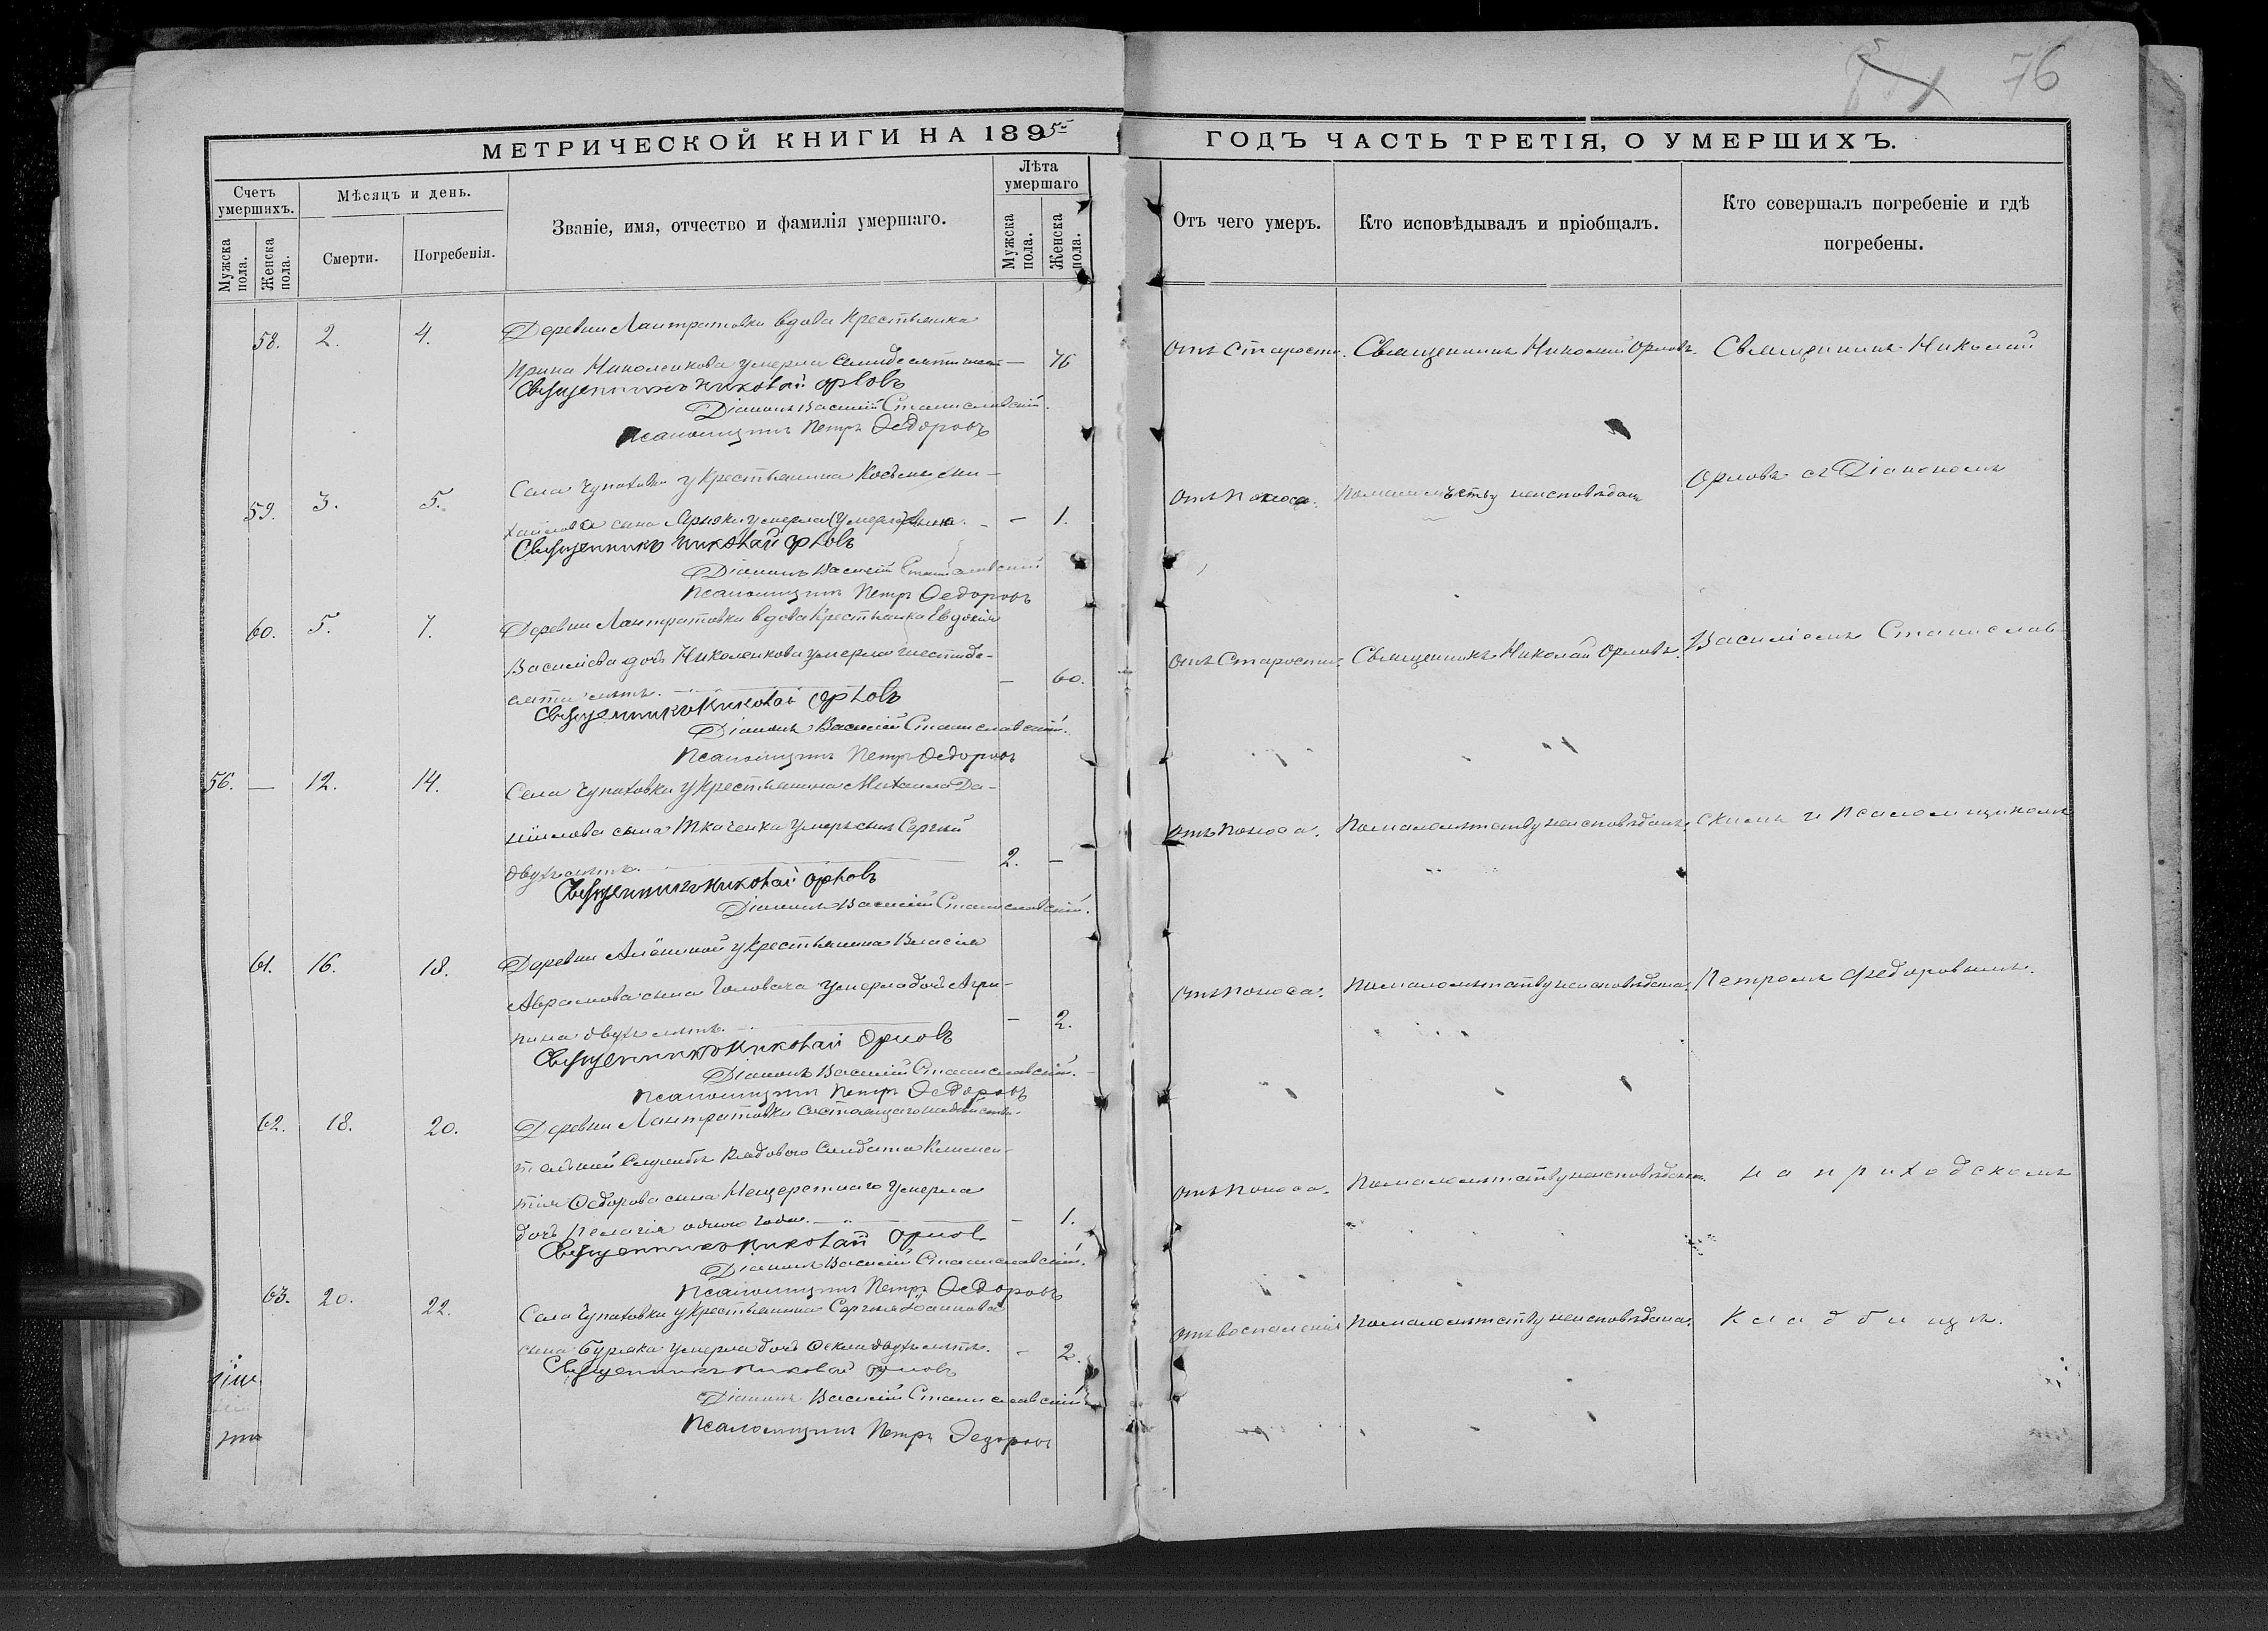 76
МЕТРИЧЕСКОЙ КНИГИ НА 1895
ГОДЪ ЧАСТЬ ТРЕТІЯ, О УМЕРШИХЪ.
Счетъ умершихъ.
Мужска пола.
Женска пола.
Мѣсяцъ и день.
Смерти.
Погребенія.
Званіе, имя, отчество и фамилія умершаго.
Лѣта умершаго
Мужска пола.
Женска пола.
Отъ чего умеръ.
Кто исповѣдывалъ и пріобщалъ.
Кто совершалъ погребеніе и гдѣ
погребены.
58. 2. 4. Деревни Лантратовки вдова крестьянка
Ирина Николенкова умерла семидесяти шести — 76
Отъ старости. Священникъ Николай Орловъ. Священникъ Николай
Священникъ Николай Орловъ
Діаконъ Василій Станиславскій.
Псаломщикъ Петръ Федоровъ
59. 3. 5. Села Чупаховки у крестьянина Косьмы Ми-
хаилова сына умерла — 1.
Отъ поноса. неисповѣдана Орловъ съ Діакономъ
Священникъ Николай Орловъ
Діаконъ Василій Станиславскій
Псаломщикъ Петръ Федоровъ
60. 5. 7. Деревни Лантратовки вдова крестьянка Евдокія
Василіева дочь Николенкова умерла шестиде-
сяти лѣтъ. — 60.
Отъ старости. Священникъ Николай Орловъ. Василіемъ Станислав-
Священникъ Николай Орловъ
Діаконъ Василій Станиславскій.
Псаломщикъ Петръ Федоровъ
56. — 12. 14. Села Чупаховки у крестьянина Михаила Да-
ніилова сына Ткаченка умеръ сынъ Сергій
двухъ лѣтъ. 2. —
Отъ поноса. По малолѣтству неисповѣданъ. скимъ и псаломщикомъ
Священникъ Николай Орловъ
Діаконъ Василій Станиславскій.
61. 16. 18. Деревни у крестьянина Власія
Аврамова сына Головача умерла дочь Агри-
пина двухъ лѣтъ. — 2.
Отъ поноса. По малолѣтству неисповѣдана. Петромъ Федоровымъ.
Священникъ Николай Орловъ
Діаконъ Василій Станиславскій.
Псаломщикъ Петръ Федоровъ
62. 18. 20. Деревни Лантратовки состоящаго на дѣйстви-
тельной службѣ рядового солдата Климен-
тія Федорова сына Мещеретнаго умерла
дочь Пелагія одного года. — 1.
Отъ поноса. По малолѣтству неисповѣдана. на приходскомъ
Священникъ Николай Орловъ
Діаконъ Василій Станиславскій.
Псаломщикъ Петръ Федоровъ
63. 20. 22. Села Чупаховки у крестьянина Сергія Іоаннова
сына Буряка умерла дочь Фекла двухъ лѣтъ. — 2.
Отъ воспаленія По малолѣтству неисповѣдана. кладбищѣ.
Священникъ Николай Орловъ
Діаконъ Василій Станиславскій
Псаломщикъ Петръ Федоровъ